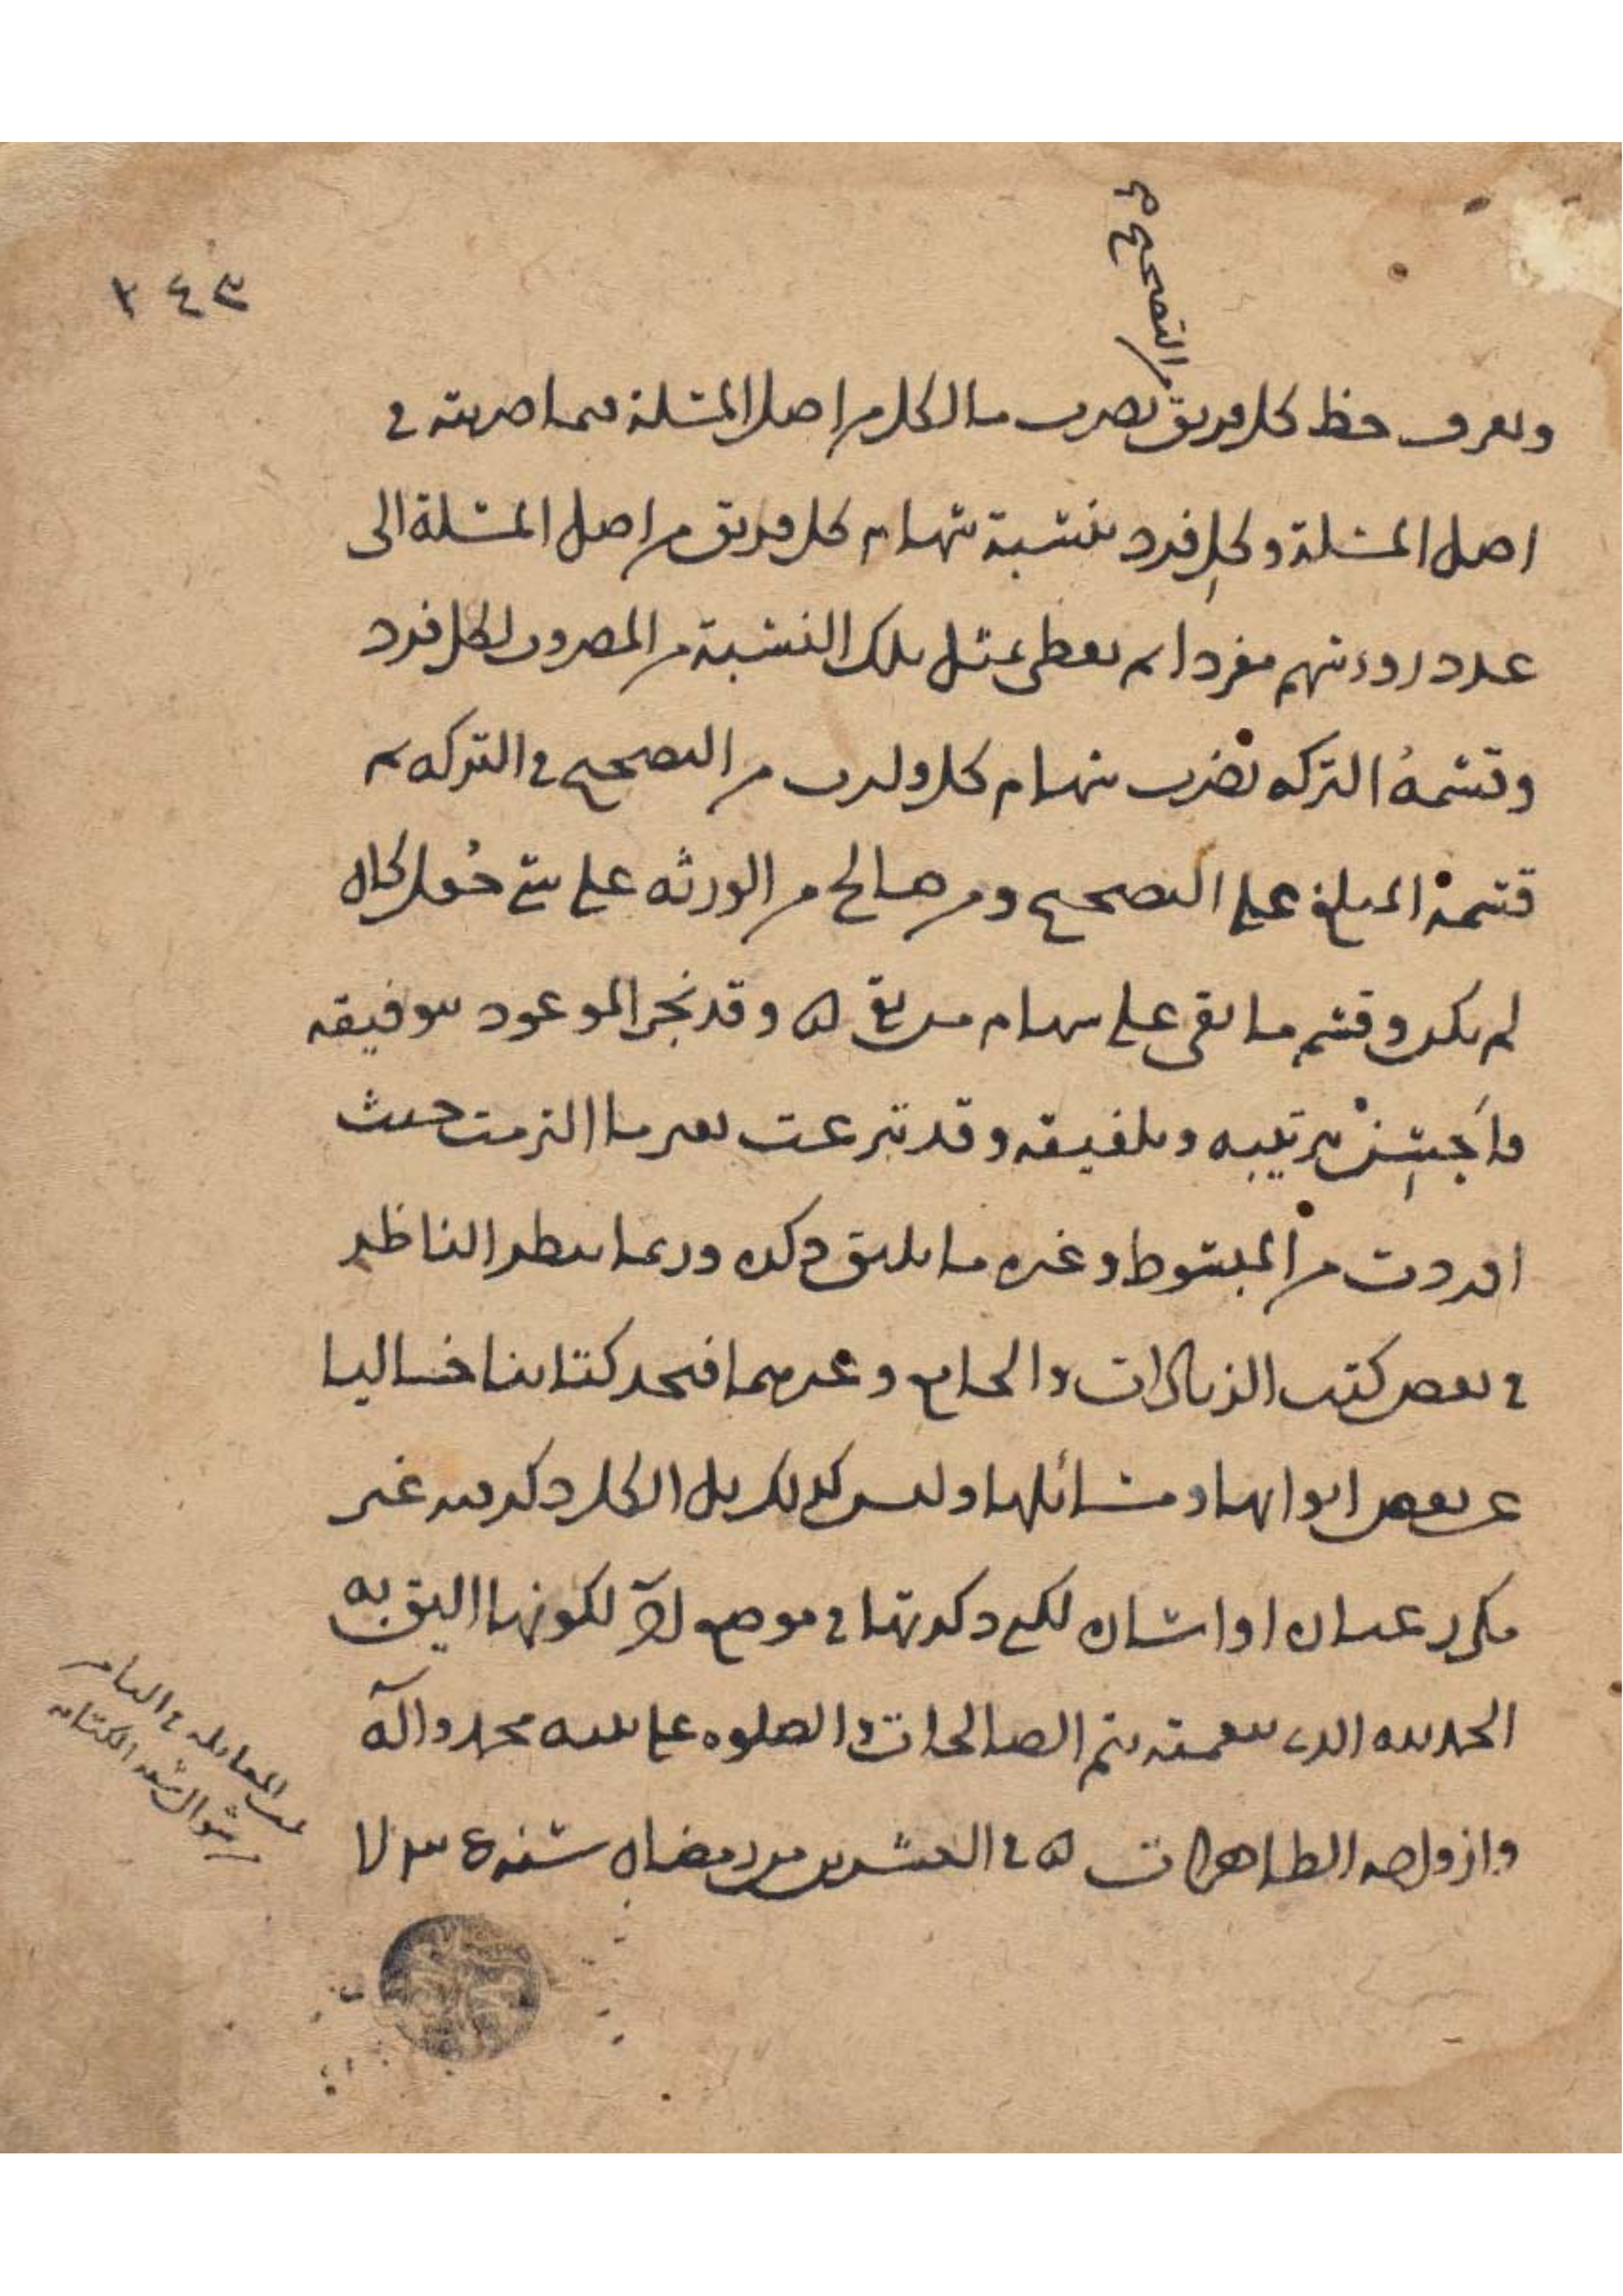 ٢٤٣
من التصحيح صح
وتعرف حظ كل فريق بضرب ما لكل من اصل المسئلة فيما ضربته في
اصل المسئلة وكل فرد بنسبة سهام كل فريق من اصل المسئلة الى
عدد روءسهم مفردا ثم يعطى بمثل تلك النسبة من المضروب لكل فرد
وقسمة التركه تضرب سهام كل وارث من التصحيح في التركه ثم
قسمة المبلغ على التصحيح ومن صالح من الورثه على شئ جُعل كان
لم يكن وقسم ما بقى على سهام من بقى ه وقد نجز الموعود بتوفيقه
ترتيبه وتلفيقه وقد تبرعت بغير ما التزمت حيث
اوردت من المبسوط وغيره ما يليق ذكره وربما ينظر الناظر
في بعض كتب الزيادات والجامع وغيرهما فيجد كتابنا خاليا
عن بعض ابوابها ومسائلها وليس كذلك بل الكل ذكر فيه غير
مكرر عباره او اشاره لكن ذكرتها في موضع آخر لكونها اليق به
الحمد لله الذي بنعمته يتم الصالحات والصلوه على نبيه محمد وآله
وازواجه الطاهرات ه في العشرين من رمضان سنه
تمت المقابله في الثامن
من شوال سنه الكتابه